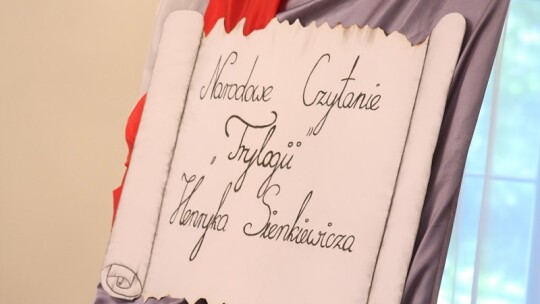 Narodowe Czytanie
„Trylogii"
Henryka Sienkiewicza